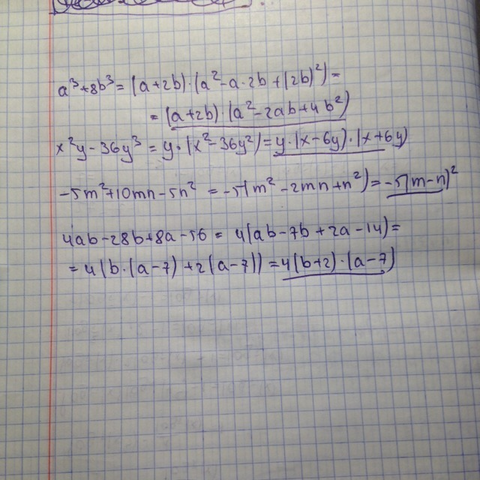 a³+8b³=(a+2b)·(a²-a·2b+(2b)²)=
=(a+2b)·(a²-2ab+4b²)
x²y-36y³=y·(x²-36y²)=y·(x-6y)·(x+6y)
-5m²+10mn-5n²=-5(m²-2mn+n²)=-5(m-n)²
4ab-28b+8a-56=4(ab-7b+2a-14)=
=4(b·(a-7)+2(a-7))=4(b+2)·(a-7)